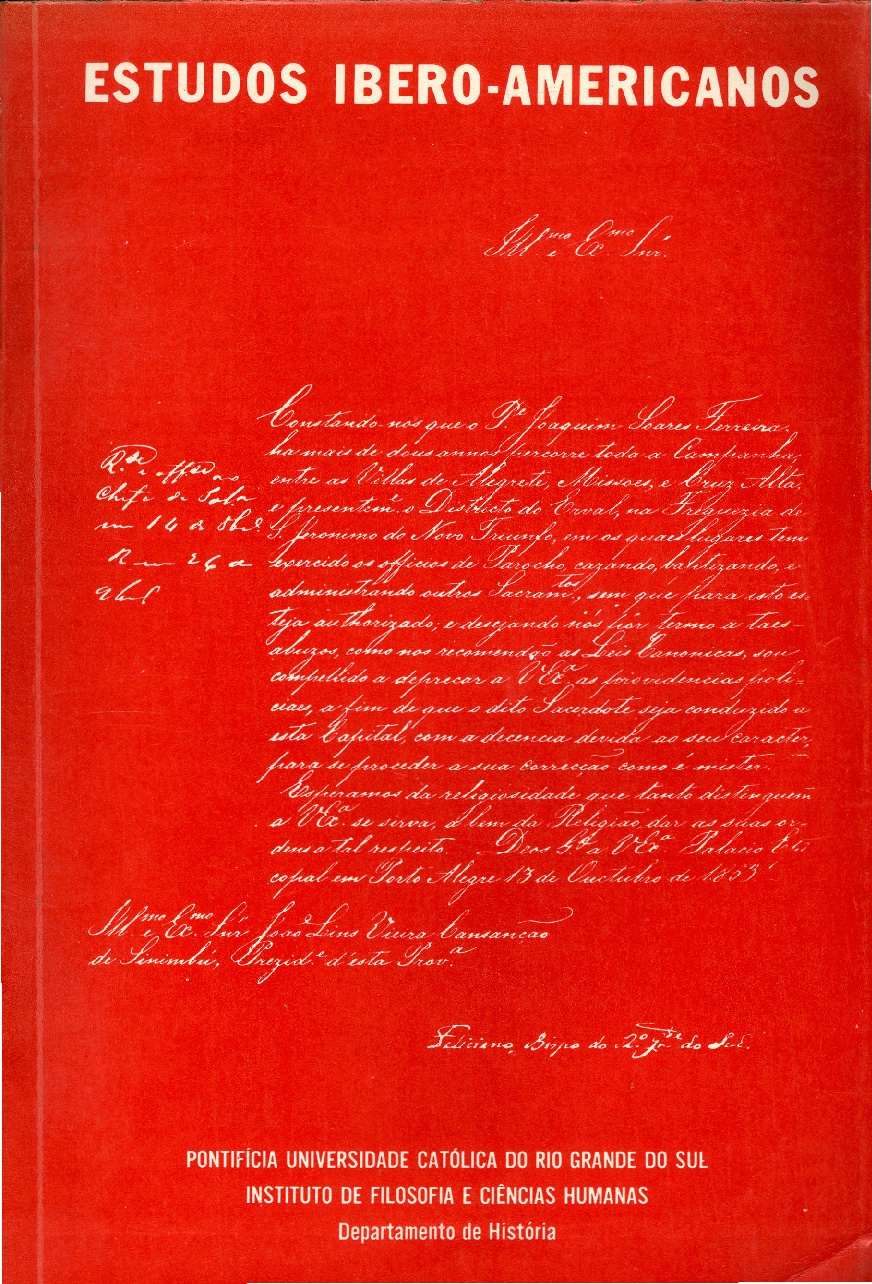 ESTUDOS IBERO-AMERICANOS
Ill.mo e Ex.mo Snr.
Constando-nos que o P.e Joaquim Soares Ferreira,
ha mais de dous annos percorre toda a Campanha,
entre as Villas de Alegrete, Missões, e Cruz Alta,
e presentem.e o Districto do Erval, na Freguezia de
S. Jeronimo do Novo Triunfo, em os quaes lugares tem
exercido os officios de Parocho, cazando, babtizando, e
administrando outros Sacram.tos, sem que para isto es
teja authorizado; e desejando nós pôr termo a taes
abuzos, como nos recomendão as Leis Canonicas, sou
compellido a deprecar a V.Ex.a as providencias poli-
ciaes, a fim de que o dito Sacerdote seja conduzido a
esta Capital, com a decencia devida ao seu caracter,
para se proceder a sua correcção como é mister.
Esperamos da religiosidade que tanto distinguem
a V.Ex.a se sirva, a bem da Religião, dar as suas or-
dens a tal respeito. Deos G.de a V.Ex.a Palacio Epis
copal em Porto Alegre 13 de Outubro de 1853
chefe de
em 14 de
26 de
Ill.mo e Ex.mo Snr João Lins Vieira Cansanção
de Sinimbú, Prezid.e d'esta Prov.a
Feliciano, Bispo do R.o Gr.de do Sul.
PONTIFÍCIA UNIVERSIDADE CATÓLICA DO RIO GRANDE DO SUL
INSTITUTO DE FILOSOFIA E CIÊNCIAS HUMANAS
Departamento de História